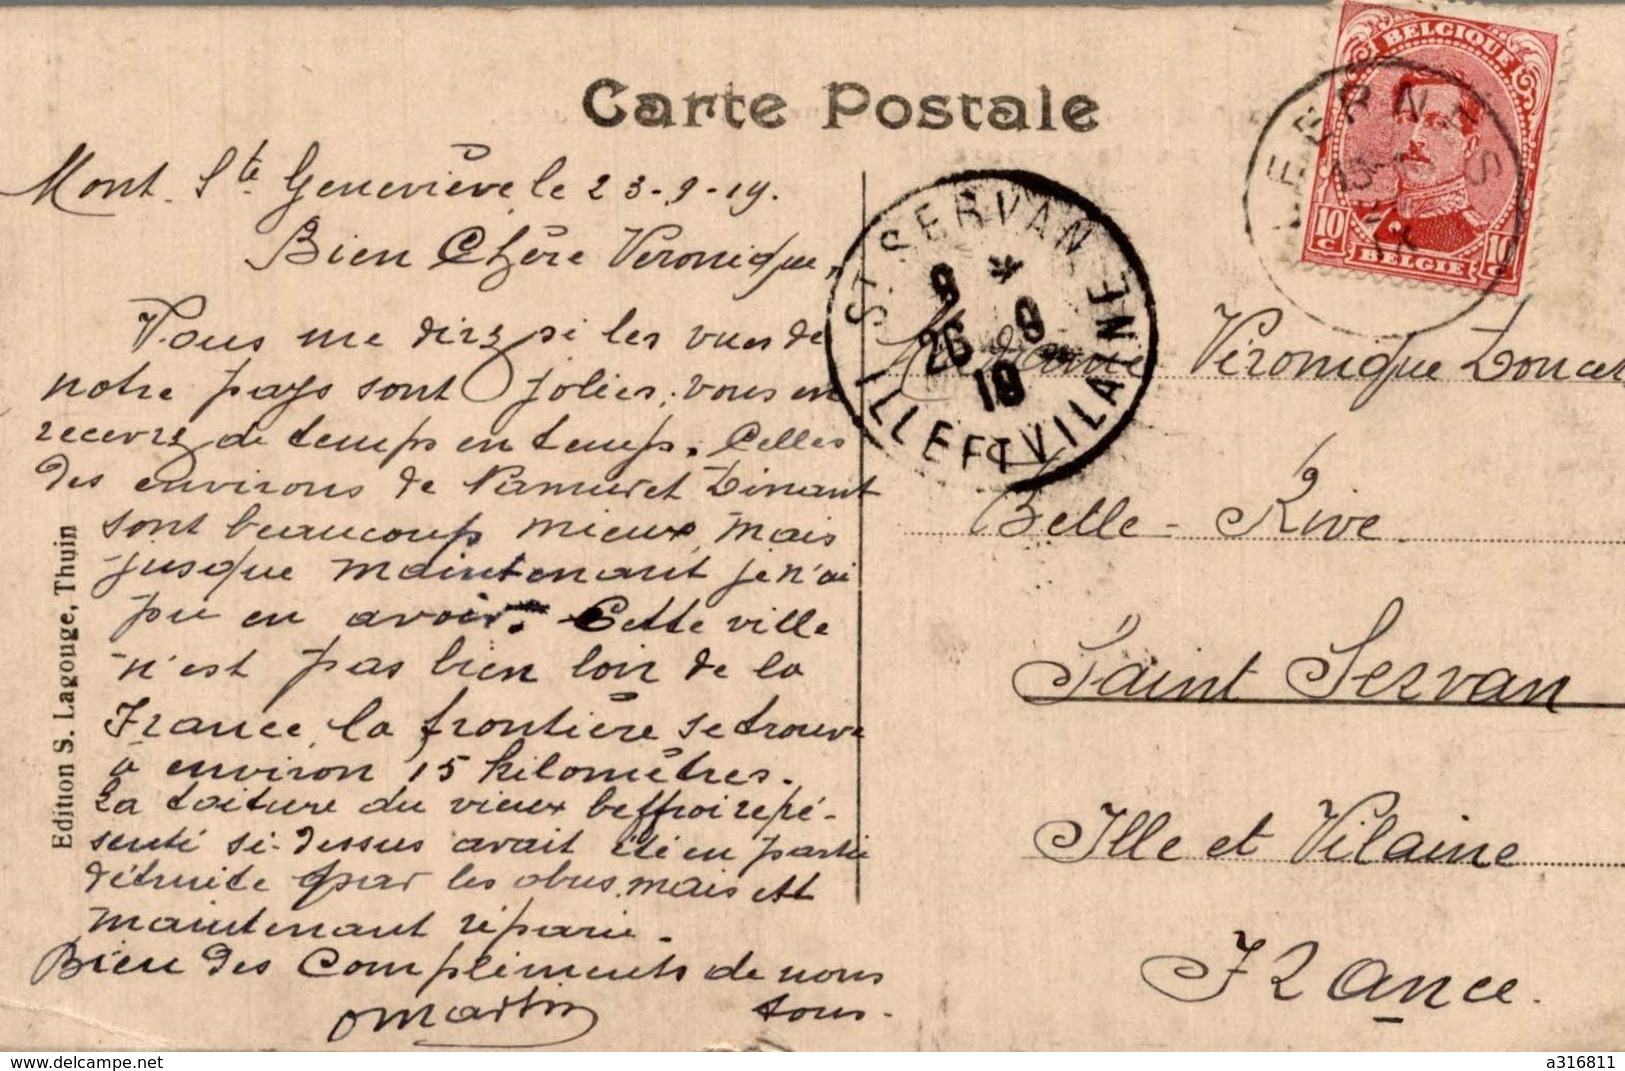 Carte Postale
Mont. Ste Geneviève, le 23-9-19.
Bien Chère Véronique,
Vous me direz si les vues de
notre pays sont jolies; vous en
recevrez de temps en temps. Celles
des environs de Namur et Dinant
sont beaucoup mieux, mais
jusque maintenant je n'ai
pu en avoir. Cette ville
n'est pas bien loin de la
France, la frontière se trouve
à environ 15 kilomètres.
La toiture du vieux beffroi repé-
senté si-dessus avait été en partie
détruite par les obus, mais est
maintenant réparée.
Bien des Compliments de nous
tous.
Martin
Edition S. Lagouge, Thuin
BELGIQUE
10 c
10 c
BELGIE
LEERNES
13-
ST SERVAN
*
8
26 9
19
ILLE ET VILAINE
Madame Véronique
Belle-Rive.
Saint Servan
Ille et Vilaine
France.
delcampe.net
a316811